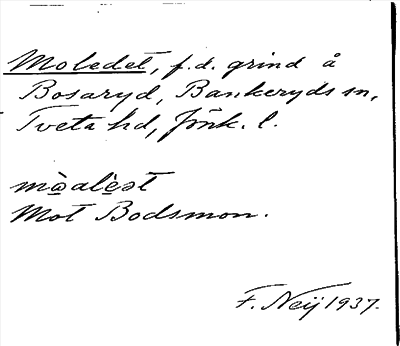 Moledet, f.d. grind å
Bosaryd, Bankeryds sn,
Tveta hd, Jönk. l.
mo̱̊̀alè̱ət
Mot Bodsmon.
F. Neij 1937.